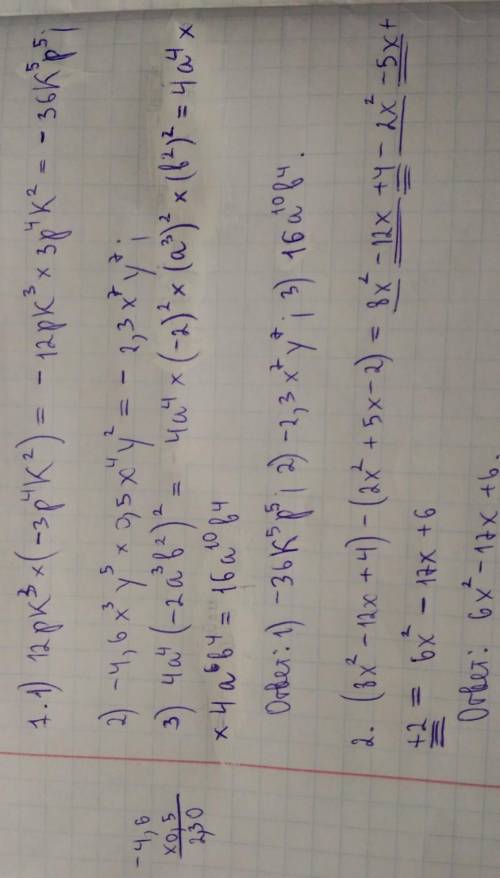 1. 1) 12pk³ × (-3p⁴k²) = -12pk³ × 3p⁴k² = -36k⁵p⁵;
2) -4,6x³y⁵ × 0,5x⁴y² = -2,3x⁷y⁷;
3) 4a⁴(-2a³b²)² = 4a⁴ × (-2)² × (a³)² × (b²)² = 4a⁴ ×
× 4a⁶b⁴ = 16a¹⁰b⁴
Ответ: 1) -36k⁵p⁵; 2) -2,3x⁷y⁷; 3) 16a¹⁰b⁴.
2. (8x² - 12x + 4) - (2x² + 5x - 2) = 8x² - 12x + 4 - 2x² - 5x +
+2 = 6x² - 17x + 6
Ответ: 6x² - 17x + 6.
-4,6
×0,5
2,30